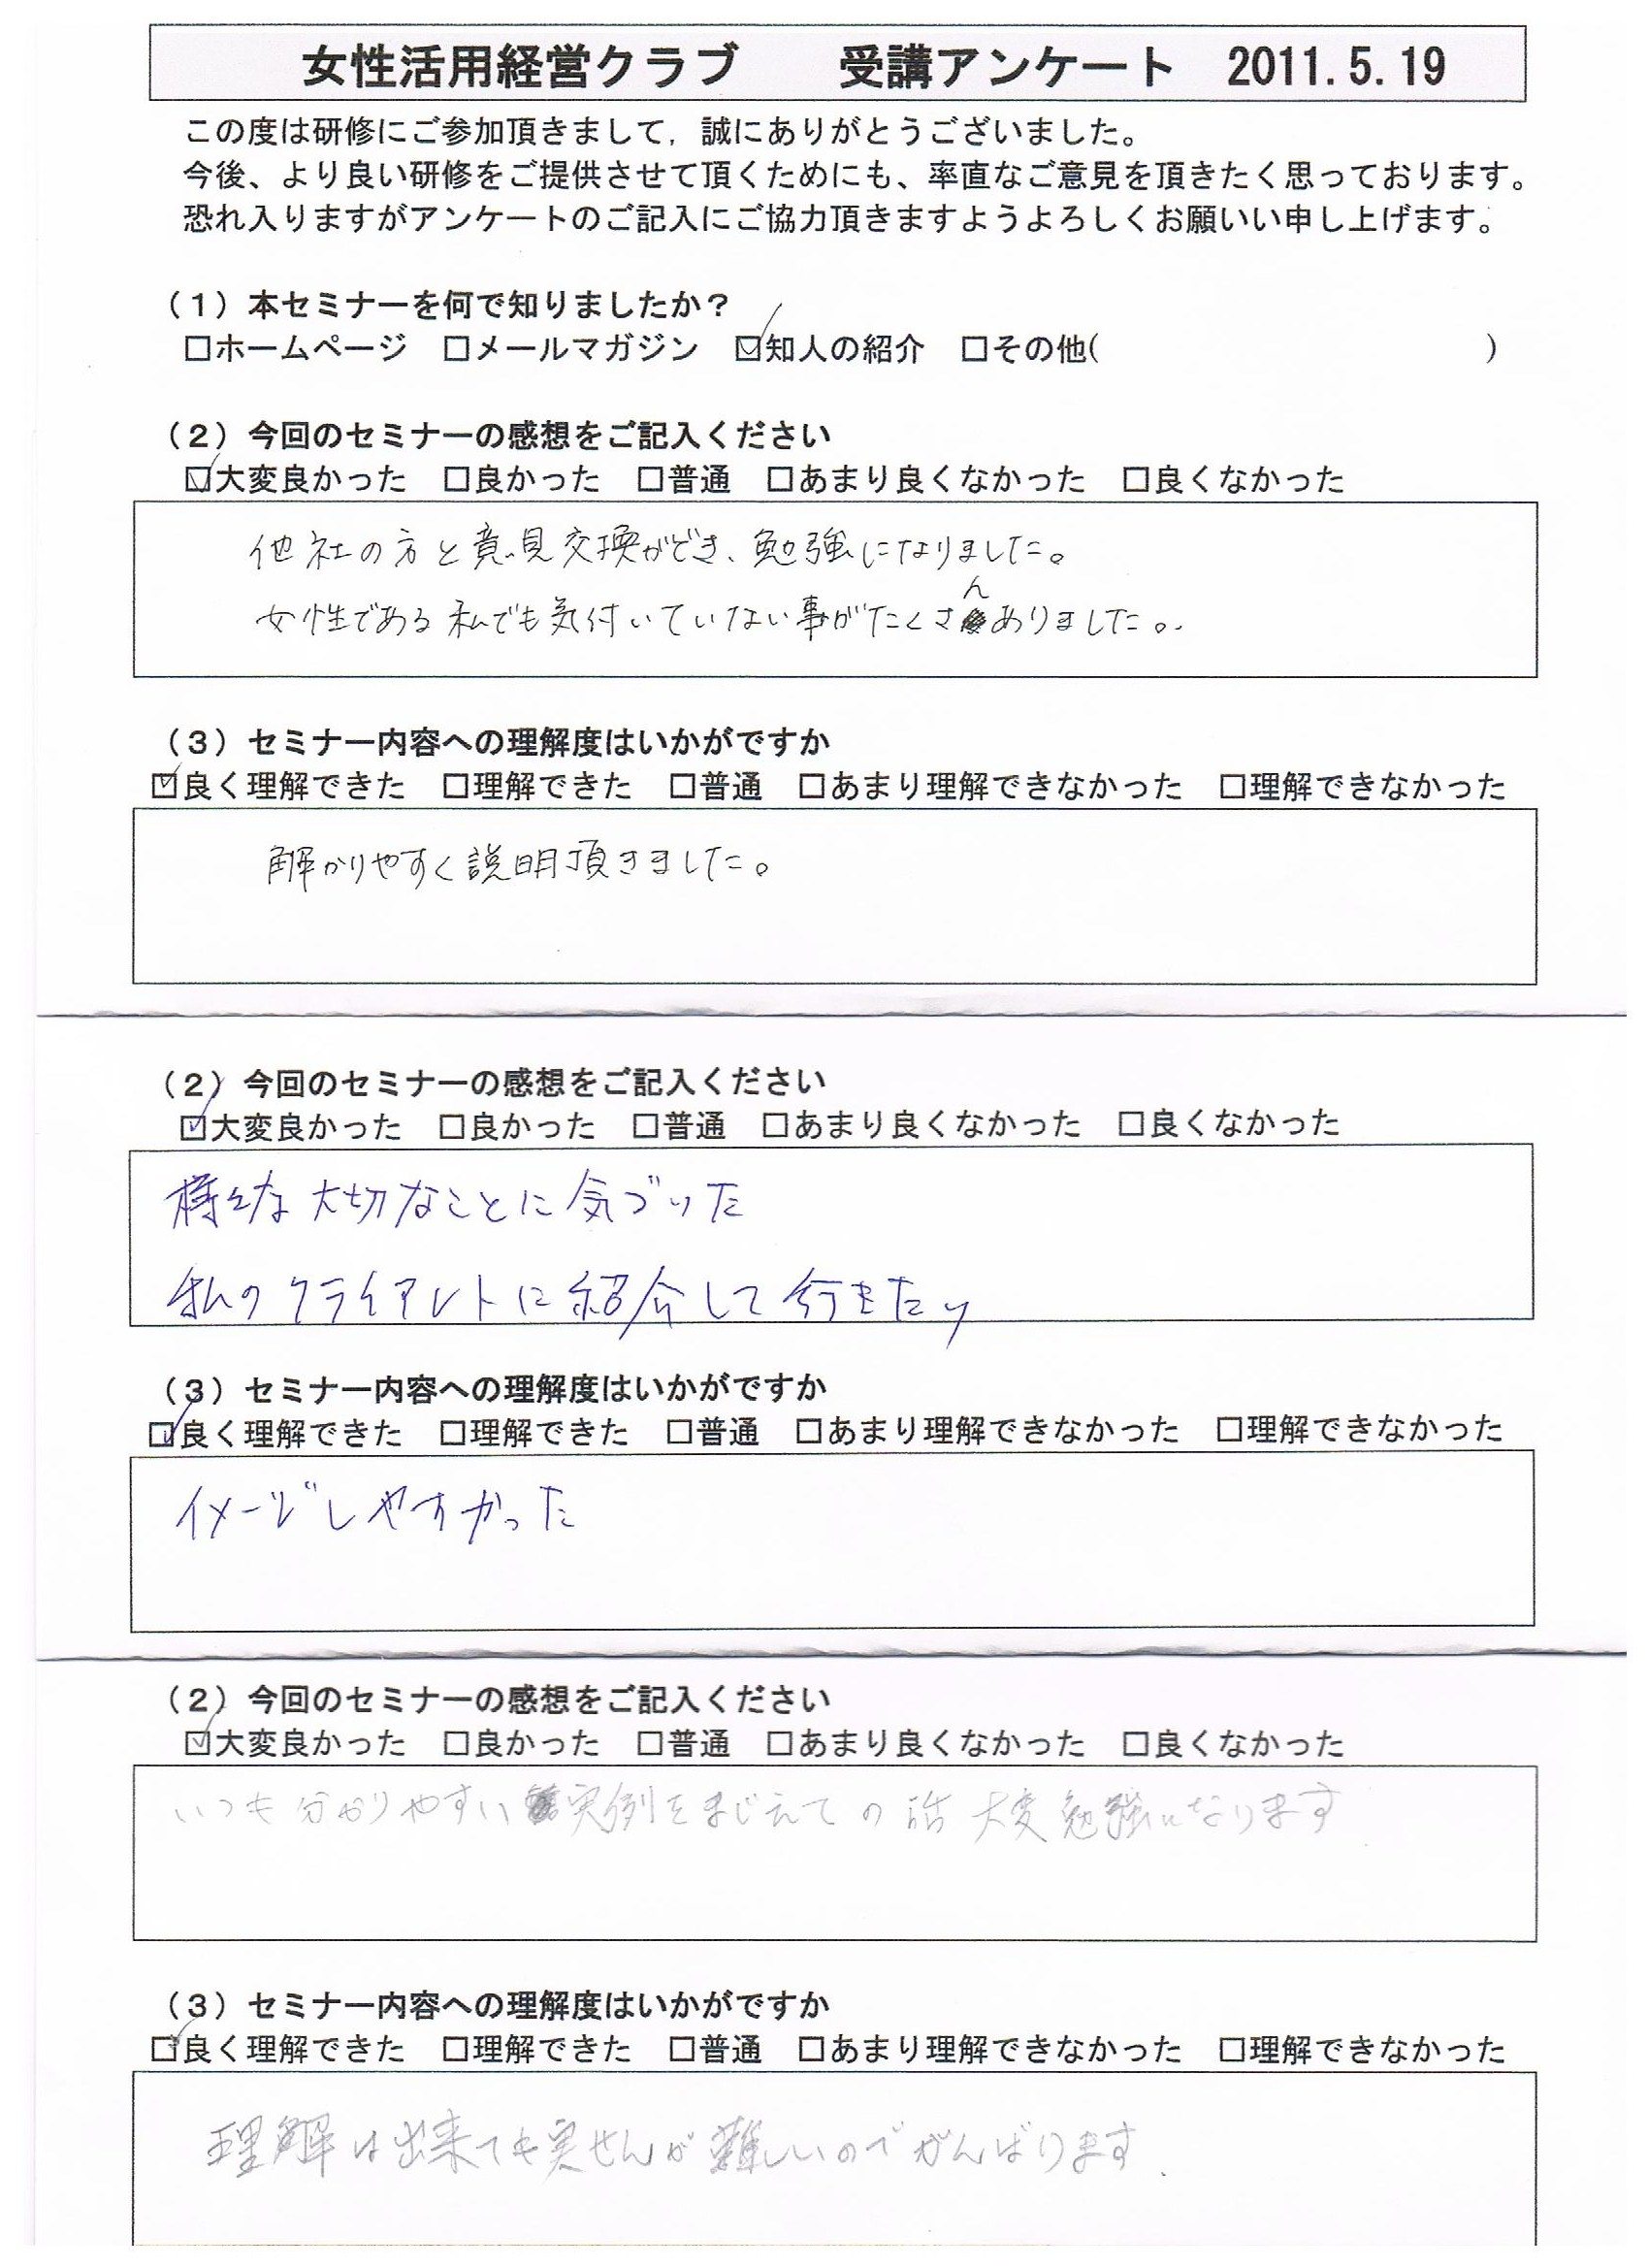 女性活用経営クラブ　　受講アンケート　2011.5.19
この度は研修にご参加頂きまして，誠にありがとうございました。
今後、より良い研修をご提供させて頂くためにも、率直なご意見を頂きたく思っております。
恐れ入りますがアンケートのご記入にご協力頂きますようよろしくお願いい申し上げます。
（１）本セミナーを何で知りましたか？
□ホームページ　□メールマガジン　☑知人の紹介　□その他(　　　　　　　　　　　　)
（２）今回のセミナーの感想をご記入ください
☑大変良かった　□良かった　□普通　□あまり良くなかった　□良くなかった
他社の方と意見交換ができ、勉強になりました。
女性である私でも気付いていない事がたくさんありました。
（３）セミナー内容への理解度はいかがですか
☑良く理解できた　□理解できた　□普通　□あまり理解できなかった　□理解できなかった
解かりやすく説明頂きました。
（２）今回のセミナーの感想をご記入ください
☑大変良かった　□良かった　□普通　□あまり良くなかった　□良くなかった
様々な大切なことに気づいた
私のクライアントに紹介して行きたい
（３）セミナー内容への理解度はいかがですか
☑良く理解できた　□理解できた　□普通　□あまり理解できなかった　□理解できなかった
イメージしやすかった
（２）今回のセミナーの感想をご記入ください
☑大変良かった　□良かった　□普通　□あまり良くなかった　□良くなかった
いつも分かりやすい実例をまじえての話 大変勉強になります
（３）セミナー内容への理解度はいかがですか
☑良く理解できた　□理解できた　□普通　□あまり理解できなかった　□理解できなかった
理解は出来ても実せんが難しいのでがんばります.